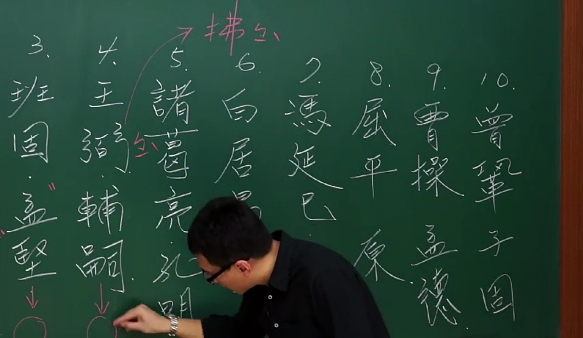 3.
班固．孟堅
4.
王弼．輔嗣
弗
拂
5.
諸葛亮 孔明
6.
白居易
7.
馮延巳
8.
屈平 原
9.
曹操 孟德
10.
曾鞏 子固